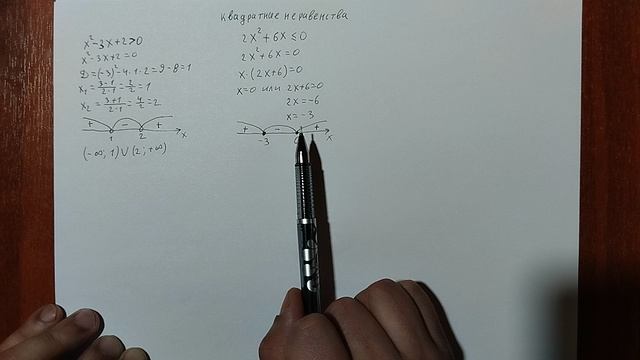 Квадратние неравенства
x²-3x+2>0
x²-3x+2=0
D=(-3)²-4·1·2=9-8=1
x₁=(3-1)/(2·1)=2/2=1
x₂=(3+1)/(2·1)=4/2=2
+ - +
1 2 x
(-∞; 1)∪(2; +∞)
2x²+6x≤0
2x²+6x=0
x·(2x+6)=0
x=0 или 2x+6=0
2x=-6
x=-3
+ - +
-3 x